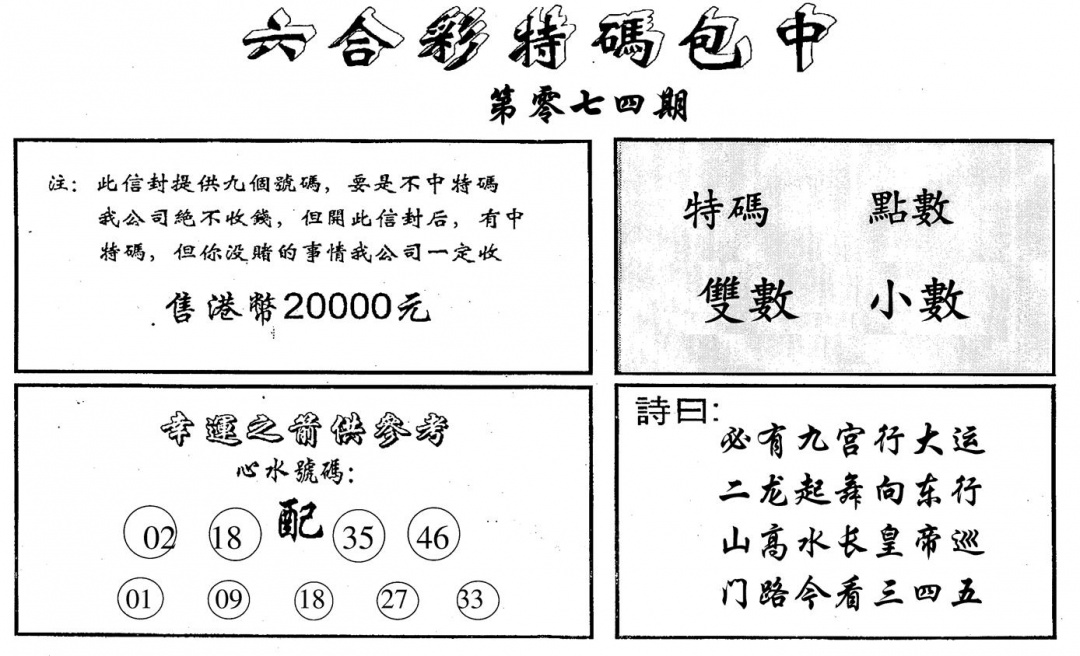 六合彩特碼包中
第零七四期
注：此信封提供九個號碼，要是不中特碼
我公司絶不收錢，但開此信封后，有中
特碼，但你没賭的事情我公司一定收
售港幣20000元
特碼 點數
雙數 小數
幸運之箭供參考
心水號碼：
02 18 配 35 46
01 09 18 27 33
詩曰：
必有九宫行大运
二龙起舞向东行
山高水长皇帝巡
门路今看三四五